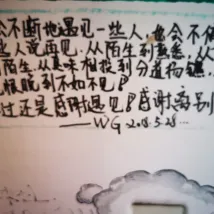 会不断地遇见一些人，也会不停
些人说再见，从陌生到熟悉，从
陌生，从臭味相投到分道扬镳，
见恨晚到不如不见！
过还是感谢遇见！感谢离别
——WG .2018.3.28...